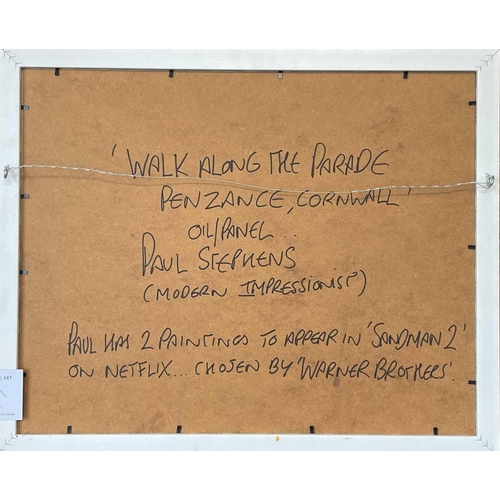 'WALK ALONG THE PARADE
PENZANCE, CORNWALL'
OIL/PANEL...
PAUL STEPHENS
(MODERN IMPRESSIONIST)
PAUL HAS 2 PAINTINGS TO APPEAR IN 'SANDMAN 2'
ON NETFLIX... CHOSEN BY 'WARNER BROTHERS'.
ART